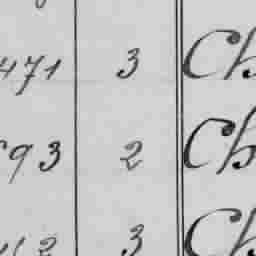 471 3 Ch
593 2 Ch
3 Ch